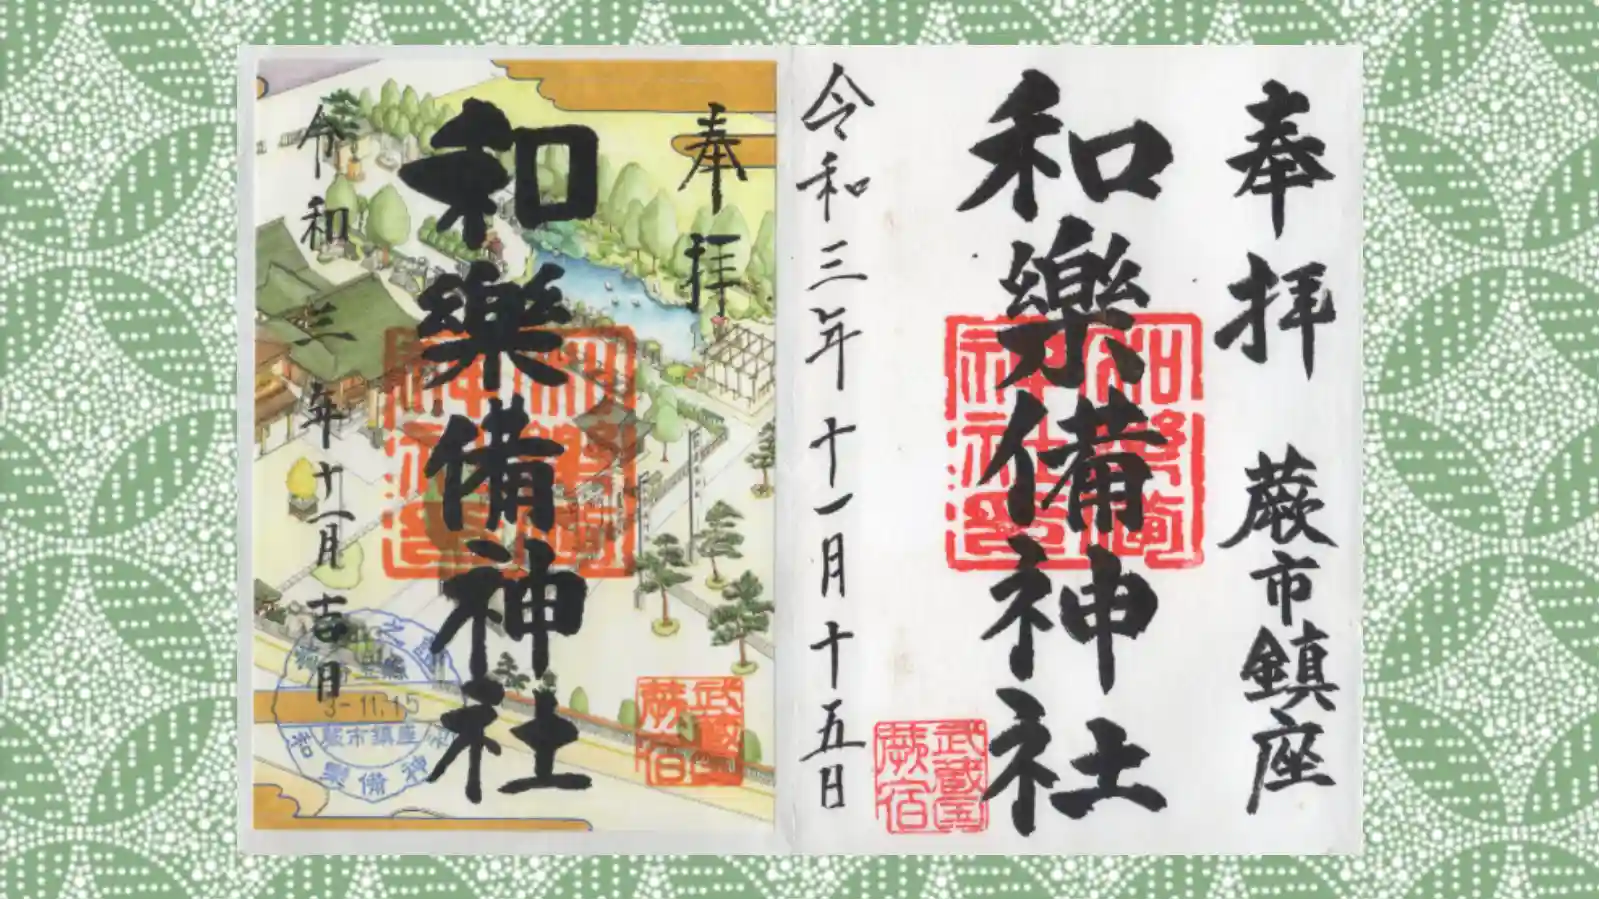 奉拝 蕨市鎮座
和樂備神社
和樂備神社印
武蔵国蕨宿
令和三年十一月十五日
奉拝
和樂備神社
和樂備神社印
武蔵国蕨宿
令和三年十一月吉日
3-11.15
蕨市鎮座